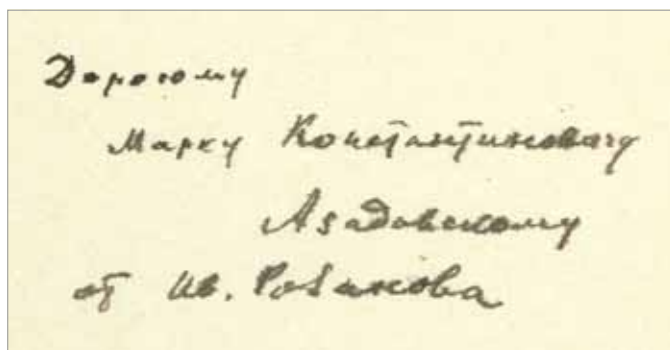 Дорогому
Марку Константиновичу
Азадовскому
от Ив. Розанова